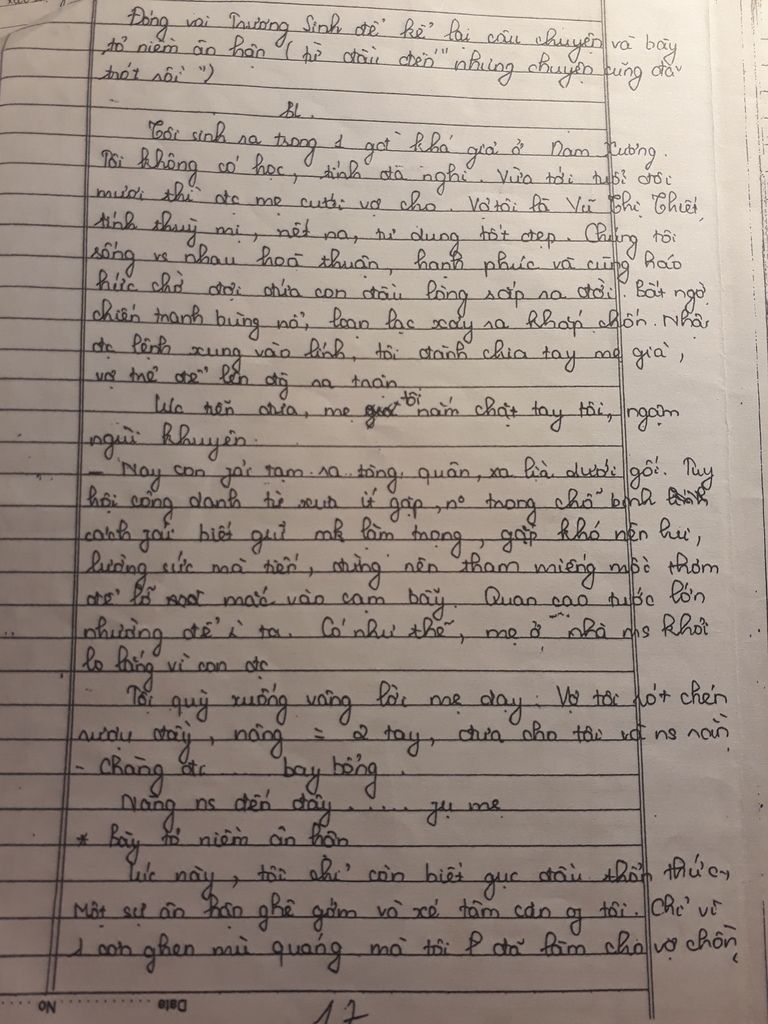 Đóng vai Trương Sinh để kể lại câu chuyện và bày
tỏ niềm ân hận (từ đầu đến "nhưng chuyện cũng đã
trót rồi")
BL.
Tôi sinh ra trong 1 gđ khá giả ở Nam Xương.
Tôi không có học, tính đa nghi. Vừa tới tuổi đôi
mươi thì đc mẹ cưới vợ cho. Vợ tôi là Vũ Thị Thiết,
tính thuỳ mị, nết na, tư dung tốt đẹp. Chúng tôi
sống vs nhau hoà thuận, hạnh phúc và cùng háo
hức chờ đợi đứa con đầu lòng sắp ra đời. Bất ngờ
chiến tranh bùng nổ, loạn lạc xảy ra khắp chốn. Nhận
đc lệnh xung vào lính, tôi đành chia tay mẹ già,
vợ trẻ để lên đg ra trận
Lúc tiễn đưa, mẹ tôi nắm chặt tay tôi, ngậm
ngùi khuyên.
- Nay con fải tạm ra tòng quân, xa lìa dưới gối. Tuy
hội công danh từ xưa ít gặp, n° trong chỗ binh
cách fải biết giữ mk làm trọng, gặp khó nên lui,
lường sức mà tiến, đừng nên tham miếng mồi thơm
để lỡ mắc vào cạm bẫy. Quan cao tước lớn
nhường để ta. Có như thế, mẹ ở nhà ms khỏi
lo lắng vì con đc
Tôi quỳ xuống vâng lời mẹ dạy. Vợ tôi rót chén
rượu đầy, nâng = 2 tay, đưa cho tôi và ns rằng
- Chàng đc ..... bay bổng.
Nàng ns đến đây ..... mẹ
* Bày tỏ niềm ân hận
Lúc này, tôi chỉ còn biết gục đầu thổn thức,
Một sự ân hận ghê gớm và xé tâm can tôi. Chỉ vì
1 cơn ghen mù quáng mà tôi đã làm cho vợ chồng
17
Date
No